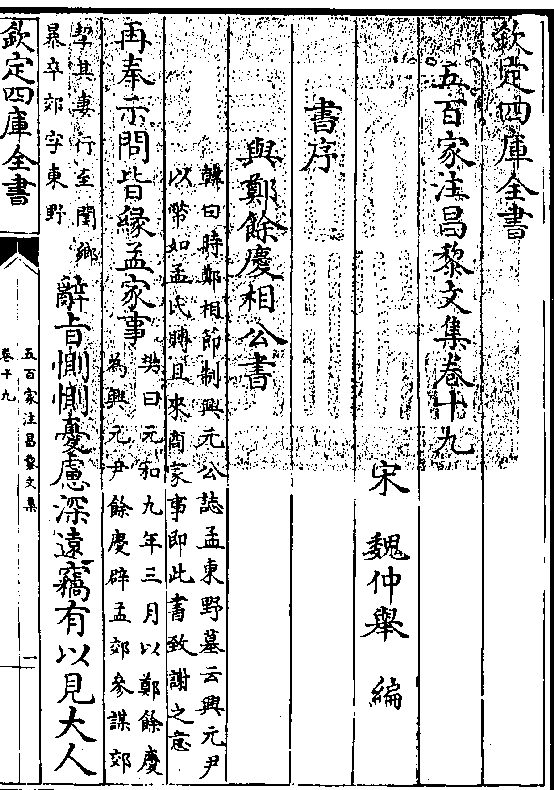 欽定四庫全書
五百家注昌黎文集卷十九
宋 魏仲舉 編
書序
與鄭餘慶相公書
韓曰時鄭相節制興元公誌孟東野墓云興元尹
以幣如孟氏賻且來商家事即此書致謝之意
再奉示問皆緣孟家事
樊曰元和九年三月以鄭餘慶
為興元尹餘慶辟孟郊參謀郊
挈其妻行至閿鄉
暴卒郊字東野
辭旨惻惻憂慮深遠竊有以見大人
欽定四庫全書
五百家注昌黎文集
卷十九
一